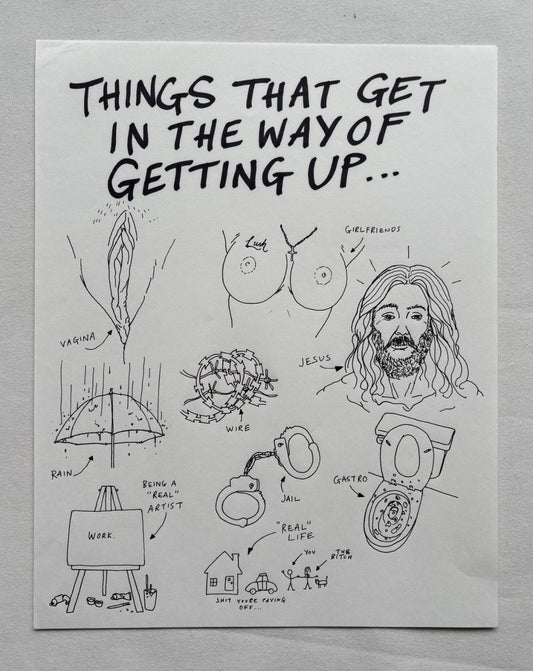 THINGS THAT GET
IN THE WAY OF
GETTING UP...
Lush
GIRLFRIENDS
VAGINA
JESUS
WIRE
RAIN
JAIL
GASTRO
BEING A
"REAL"
ARTIST
WORK.
"REAL"
LIFE
YOU
THE
BITCH
SHIT YOU'RE PAYING
OFF...